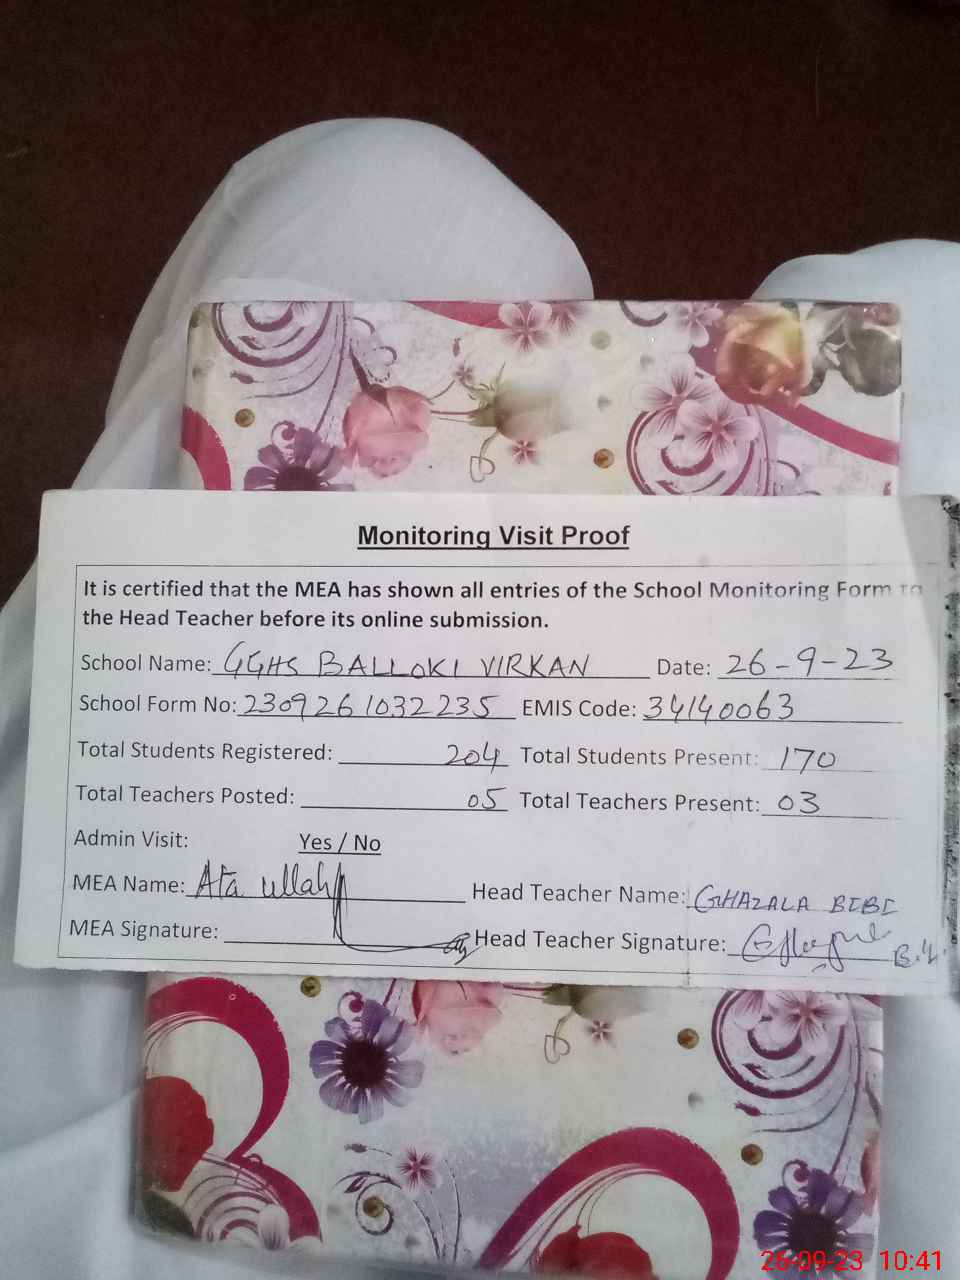 Monitoring Visit Proof
It is certified that the MEA has shown all entries of the School Monitoring Form to
the Head Teacher before its online submission.
School Name: GGHS BALLOKI VIRKAN Date: 26-9-23
School Form No: 2309261032235 EMIS Code: 34140063
Total Students Registered: 204 Total Students Present: 170
Total Teachers Posted: 05 Total Teachers Present: 03
Admin Visit: Yes / No
MEA Name: Ata ullah Head Teacher Name: GHAZALA BIBI
MEA Signature: Head Teacher Signature:
26-09-23 10:41